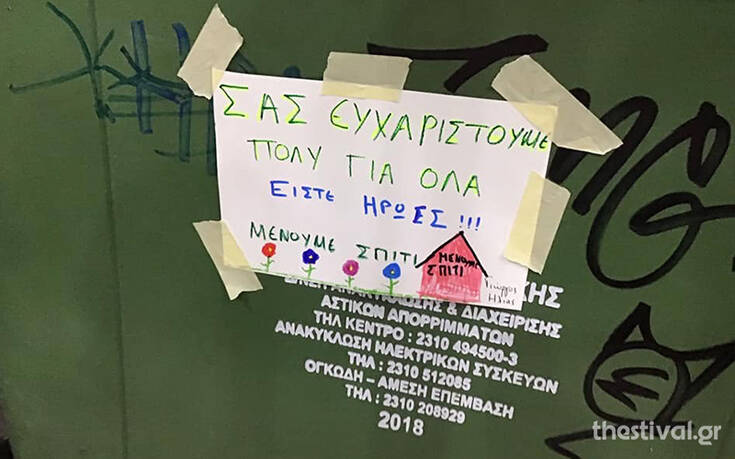 ΣΑΣ ΕΥΧΑΡΙΣΤΟΥΜΕ
ΠΟΛΥ ΓΙΑ ΟΛΑ
ΕΙΣΤΕ ΗΡΩΕΣ !!!
ΜΕΝΟΥΜΕ ΣΠΙΤΙ
ΜΕΝΟΥΜΕ
ΣΠΙΤΙ
Γιώργος
Ηλίας
& ΔΙΑΧΕΙΡΙΣΗΣ
ΑΣΤΙΚΩΝ ΑΠΟΡΡΙΜΜΑΤΩΝ
ΤΗΛ ΚΕΝΤΡΟ : 2310 494500-3
ΑΝΑΚΥΚΛΩΣΗ ΗΛΕΚΤΡΙΚΩΝ ΣΥΣΚΕΥΩΝ
ΤΗΛ : 2310 512085
ΟΓΚΩΔΗ – ΑΜΕΣΗ ΕΠΕΜΒΑΣΗ
ΤΗΛ : 2310 208929
2018
thestival.gr